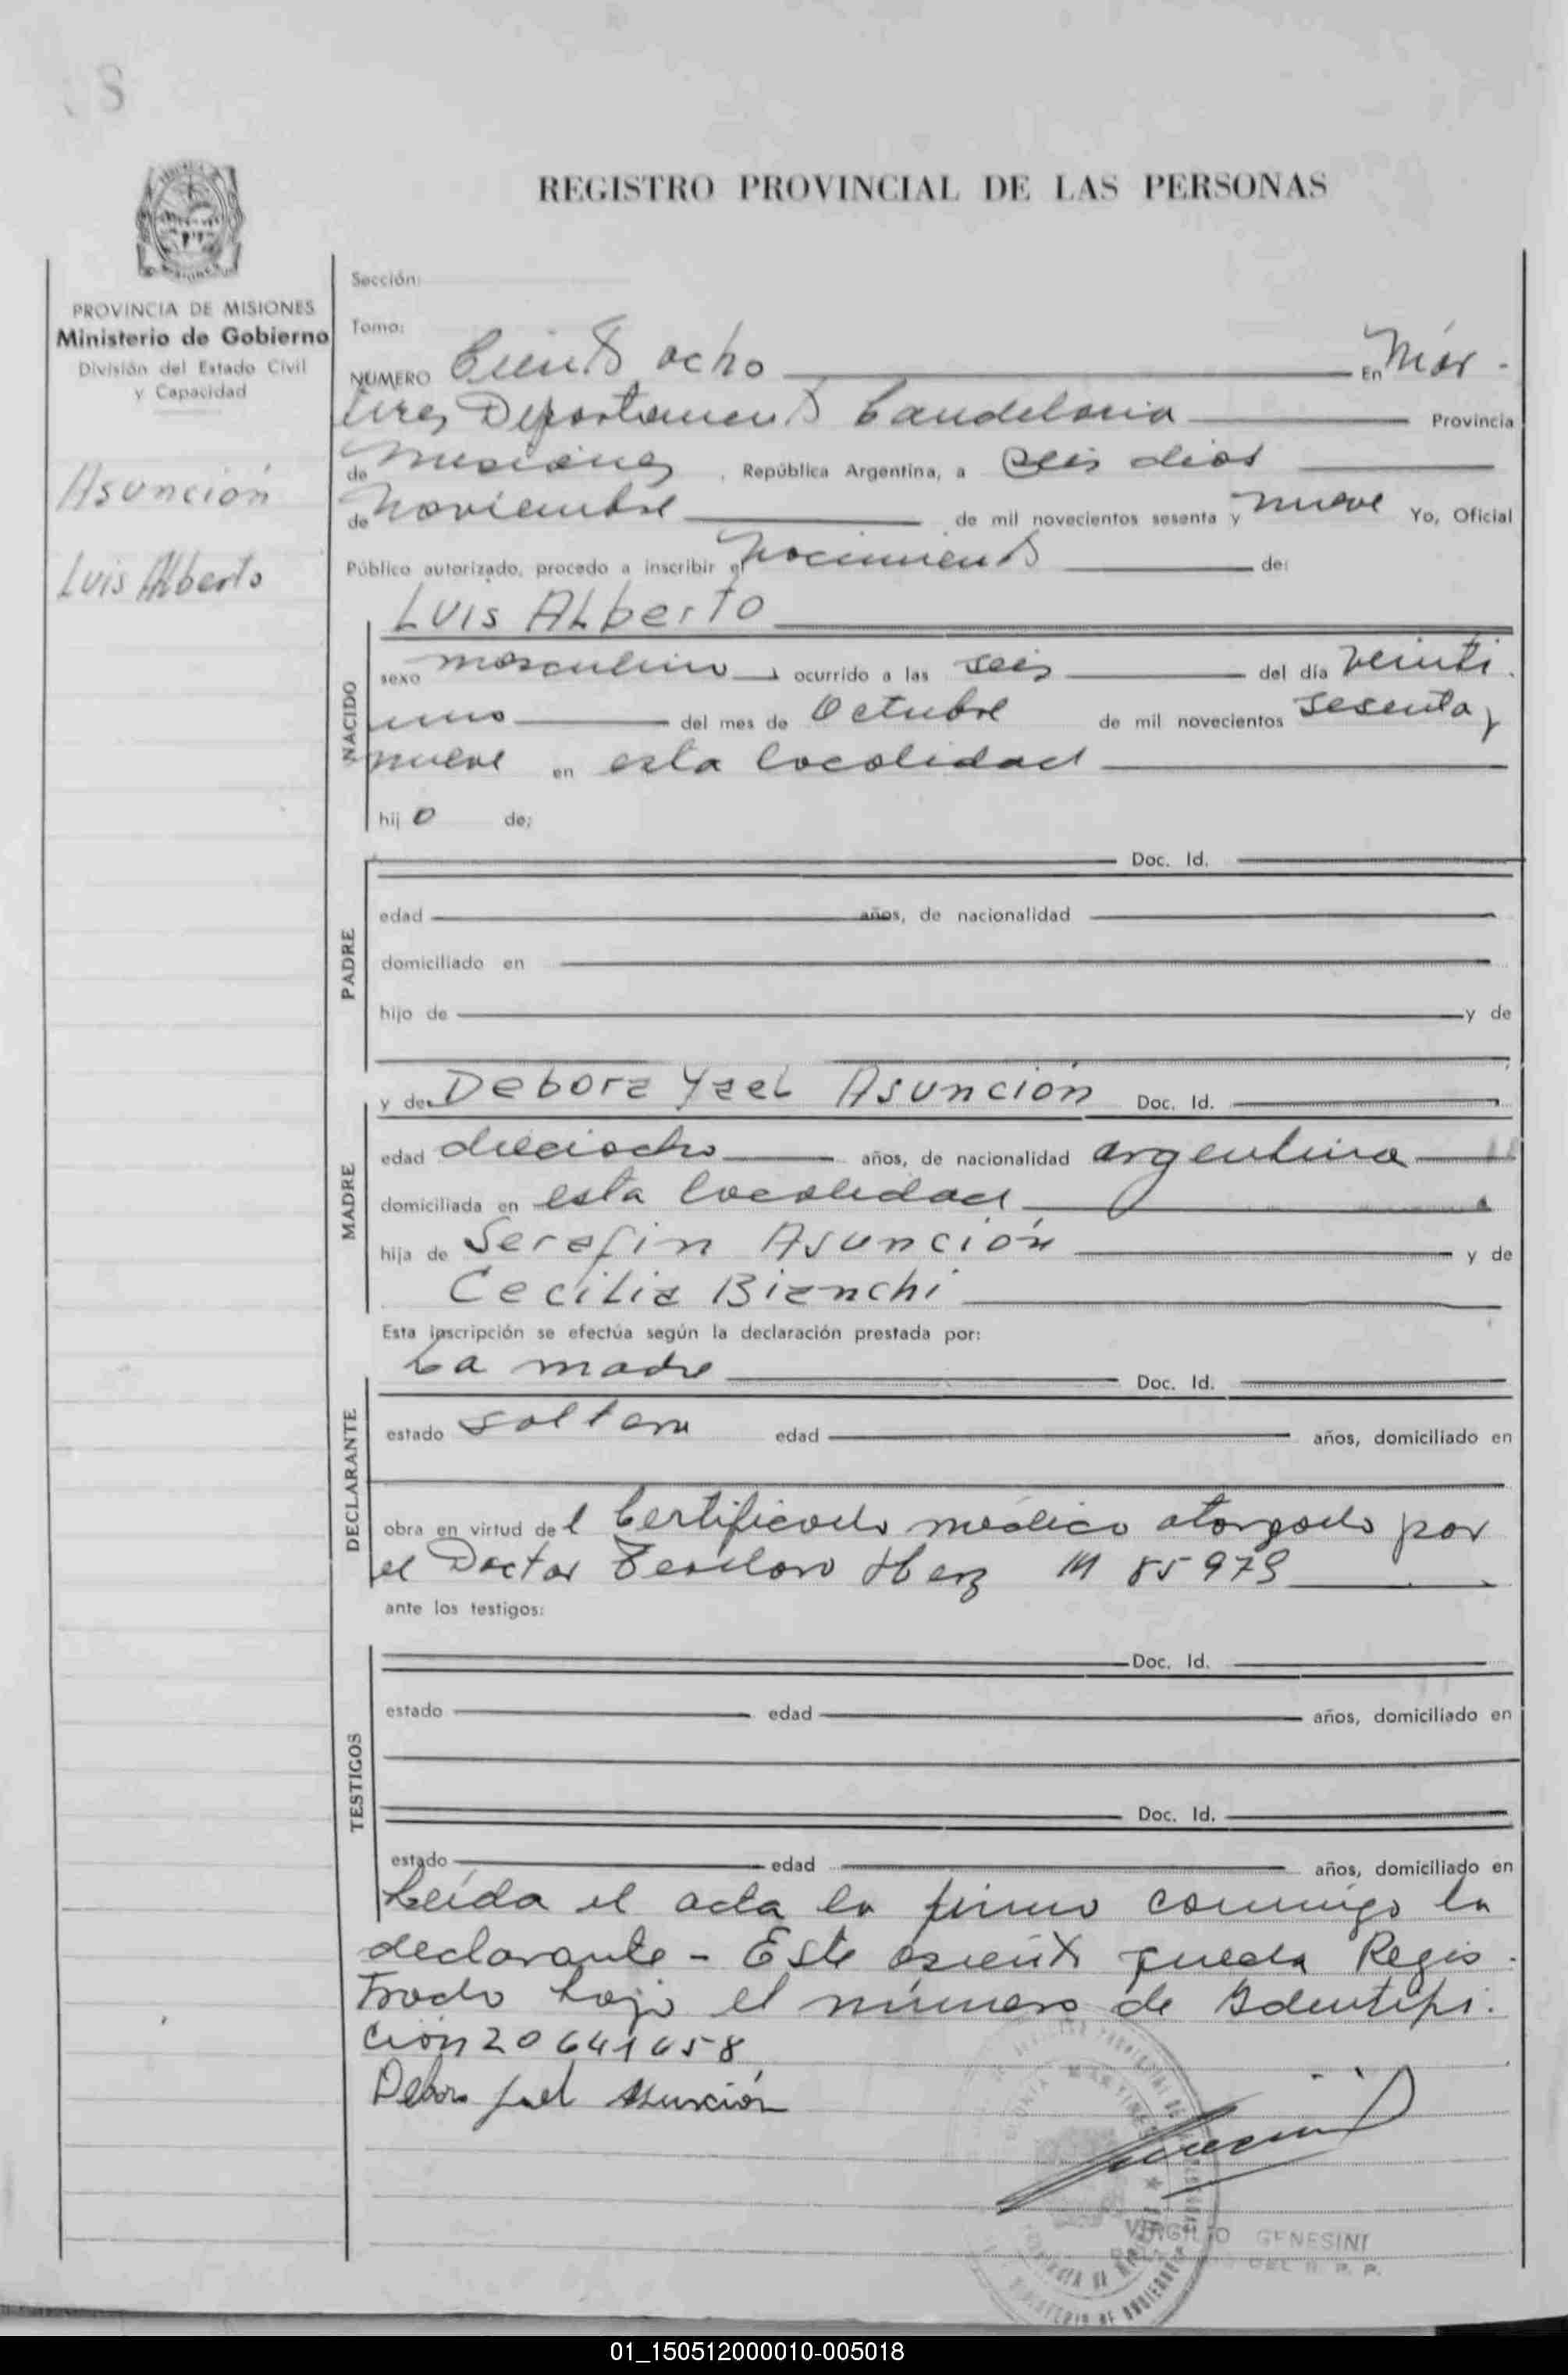 REGISTRO PROVINCIAL DE LAS PERSONAS
PROVINCIA DE MISIONES
Ministerio de Gobierno
División del Estado Civil
y Capacidad
Asunción
Luis Alberto
Sección:
Tomo:
NUMERO Ciento ocho En Már-
tires Departamento Candelaria Provincia
de Misiones, República Argentina, a seis dias
de Noviembre de mil novecientos sesenta y nueve Yo, Oficial
Público autorizado, procedo a inscribir el Nacimiento de:
Luis Alberto
NACIDO
sexo masculino ocurrido a las seis del día veinti
uno del mes de Octubre de mil novecientos sesenta y
nueve en esta localidad
hijo de:
PADRE
Doc. Id.
edad años, de nacionalidad
domiciliado en
hijo de y de
MADRE
y de Debora Yael Asunción Doc. Id.
edad dieciocho años, de nacionalidad argentina
domiciliada en esta localidad
hija de Serafin Asunción y de
Cecilia Bianchi
Esta inscripción se efectúa según la declaración prestada por:
DECLARANTE
La madre Doc. Id.
estado soltera edad años, domiciliado en
obra en virtud del Certificado médico otorgado por
el Doctor Teodoro Herz M 85979
ante los testigos:
TESTIGOS
Doc. Id.
estado edad años, domiciliado en
Doc. Id.
estado edad años, domiciliado en
Leída el acta la firma conmigo la
declarante - Este asiento queda Regis
trado bajo el número de Identifi.
ción 20641658
Debora Yael Asunción
VIRGILIO GENESINI
DEL R. P. P.
01_150512000010-005018